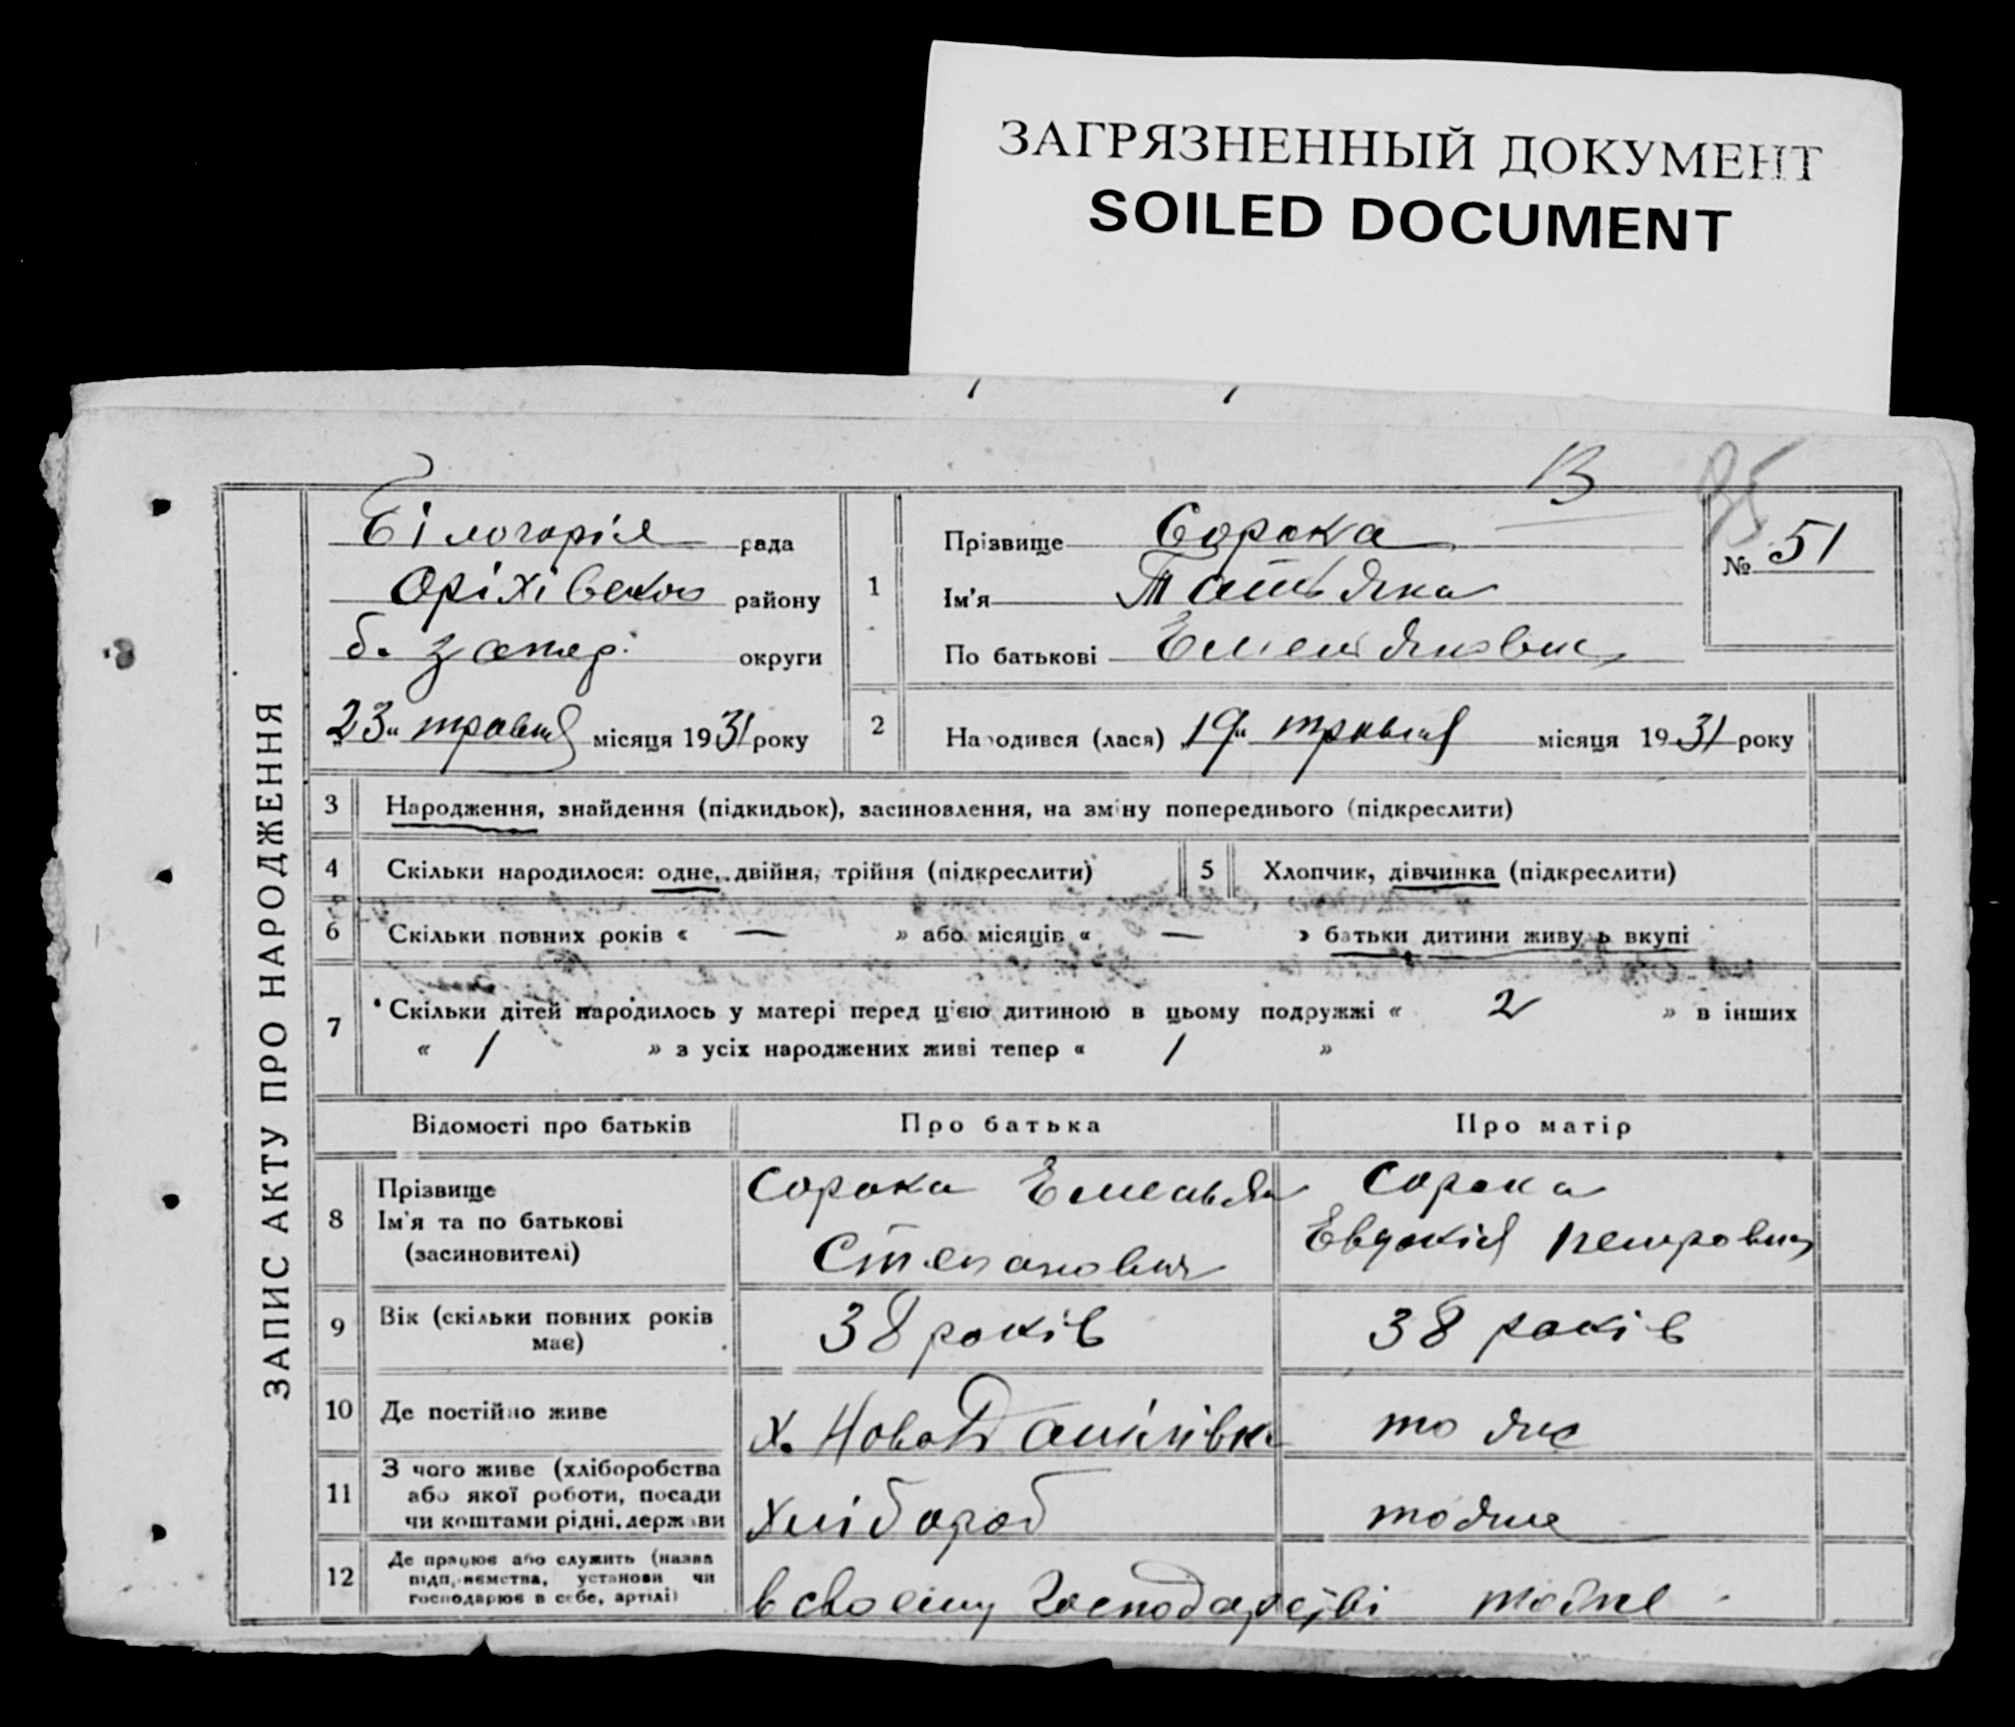 ЗАГРЯЗНЕННЫЙ ДОКУМЕНТ
SOILED DOCUMENT
В
35
ЗАПИС АКТУ ПРО НАРОДЖЕННЯ
Білогорія рада
Оріхівського району
б. запор. округи
"23" травня місяця 1931 року
1 Прізвище Сорока
Ім'я Татьяна
По батькові Емельяновна
№ 51
2 Народився (лася) "19" травня місяця 1931 року
3 Народження, знайдення (підкидьок), засиновлення, на зміну попереднього (підкреслити)
4 Скільки народилося: одне, двійня, трійня (підкреслити) 5 Хлопчик, дівчинка (підкреслити)
6 Скільки повних років « — » або місяців « — » батьки дитини живуть вкупі
7 Скільки дітей народилось у матері перед цією дитиною в цьому подружжі « 2 » в інших
« 1 » з усіх народжених живі тепер « 1 »
Відомості про батьків Про батька Про матір
8 Прізвище
Ім'я та по батькові
(засиновителі)
Сорока Емельян
Степанович
Сорока
Евдокія Петровна
9 Вік (скільки повних років
має)
38 років 38 років
10 Де постійно живе х. НовоДанилівка тоже
11 З чого живе (хліборобства
або якої роботи, посади
чи коштами рідні, держави
хлібороб тоже
12 Де працює або служить (назва
підприємства, установи чи
господарює в себе, артілі)
в своему господарстві тоже